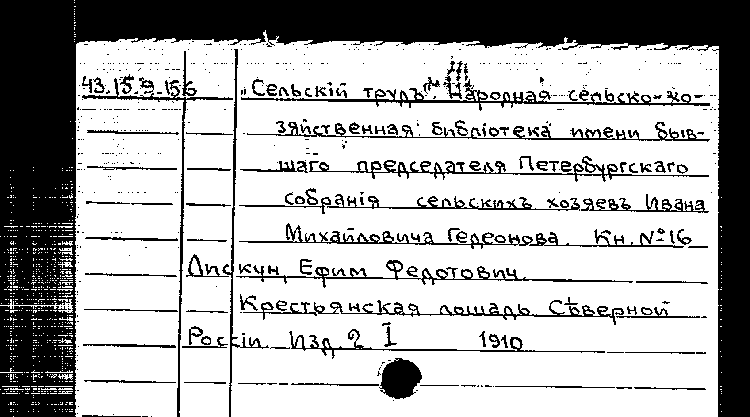 43.15.9.156 „Сельскій трудъ“. Народная сельско-хо-
зяйственная библіотека имени быв-
шаго председателя Петербургскаго
собранія сельскихъ хозяевъ Ивана
Михайловича Гедеонова. Кн. №16
Лискун, Ефим Федотович.
Крестьянская лошадь Сѣверной
Россіи. Изд. 2 I 1910